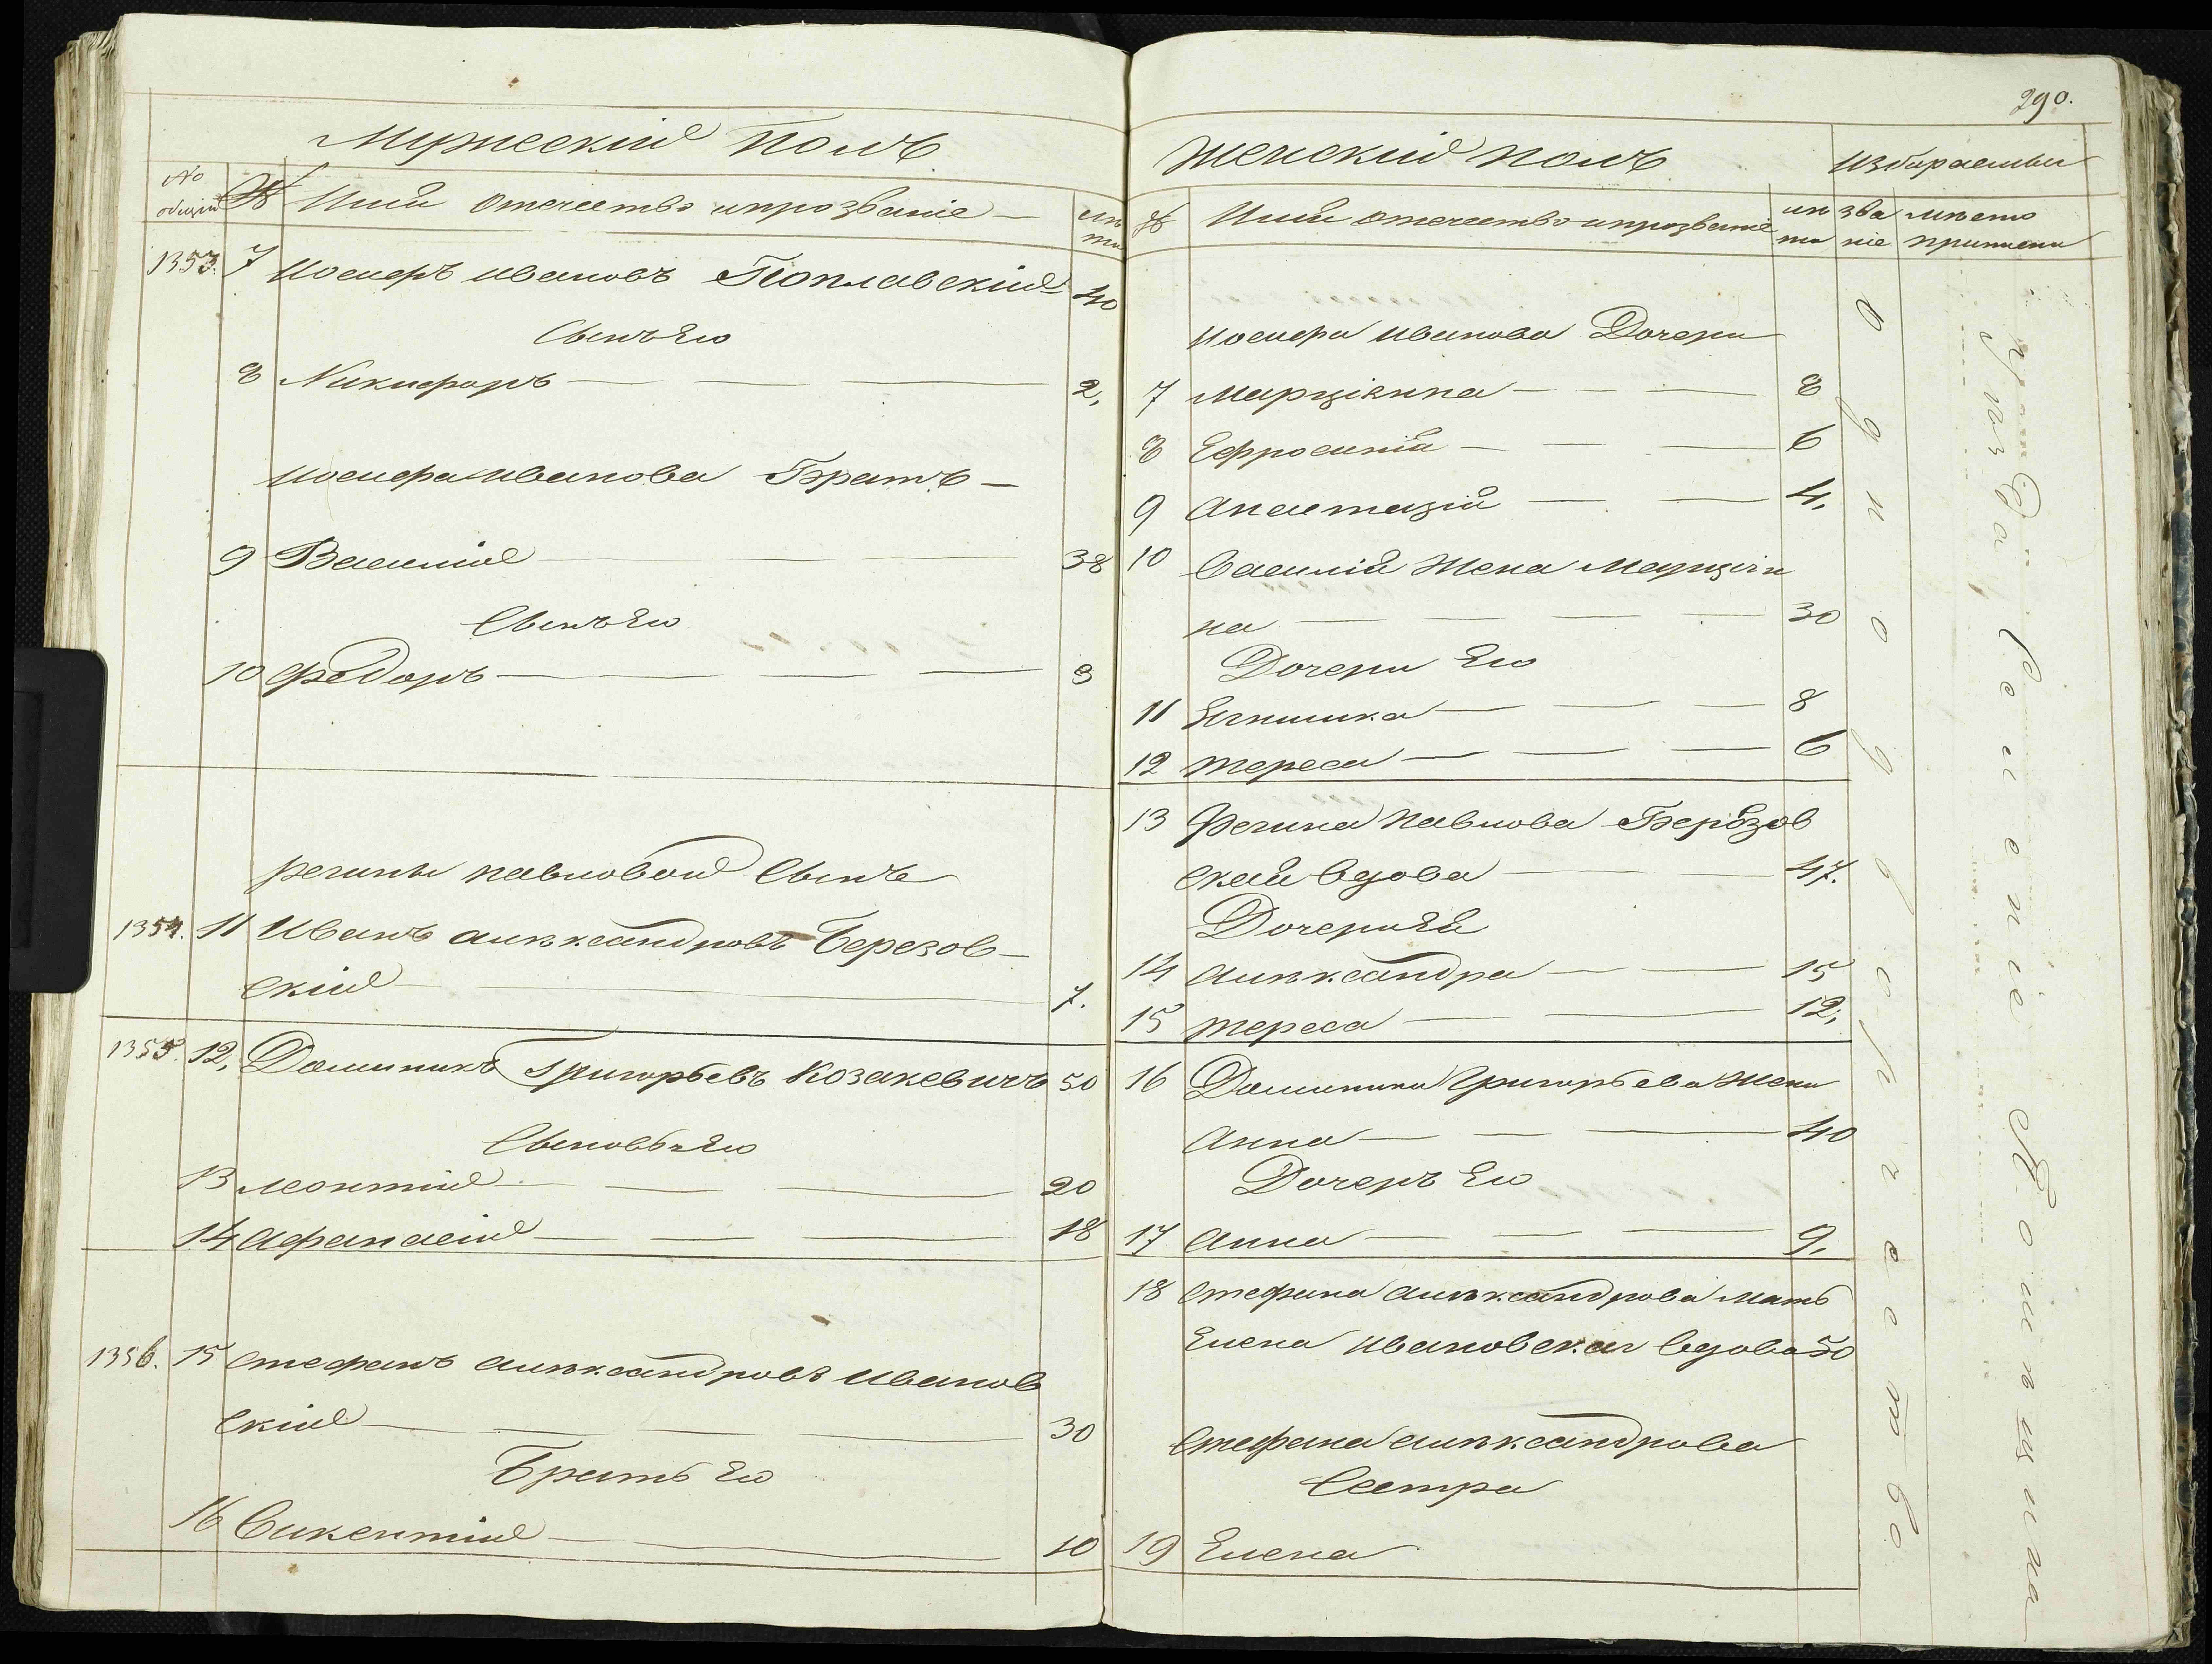 290.
Мужескій полъ
№ общій
№
Имя отечество и прозваніе
лѣта
1353. 7 Іосифъ Ивановъ Поплавскій 40
Сынъ Его
8 Никифоръ 2,
Іосифа Иванова Братъ
9 Василій 38
Сынъ Его
10 Федоръ 3
Регины Павловой Сынъ
1354. 11 Иванъ Алѣксандровъ Березов-
скій 7.
1355. 12, Доминикъ Григорьевъ Козакевичъ 50
Сыновья Его
13 Леонтій 20
14 Афанасій 18
1356. 15 Стефанъ Алѣксандровъ Иванов
скій 30
Братъ Его
16 Викентій 10
Женскій полъ
Избираемы
№
Имя отечество и прозваніе
лѣта
зва
ніе
мѣсто
приписки
Іосифа Иванова Дочери
7 Марціянна 8
8 Ефросинія 6
9 Анастазія 4,
10 Василія Жена Марціян
на 30
Дочери Его
11 8
12 Тереса 6
13 Регина Павлова Берозов
ская вдова 47.
Дочери Ея
14 Алѣксандра 15
15 Тереса 12,
16 Доминика Григорьева Жена
Анна 40
Дочеръ Его
17 Анна 9,
18 Стефана Алѣксандрова Мать
Елена Ивановская вдова 50
Стефана Алѣксандрова
Сестра
19 Елена
Однодворчество.
Уѣзда, Селеніе